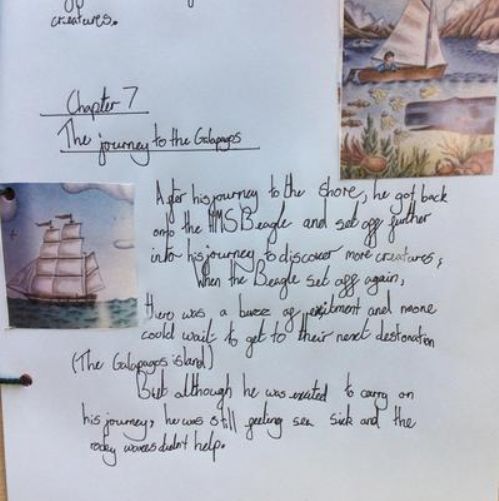 creatures.
Chapter 7
The journey to the Galapagos
After his journey to the shore, he got back
onto the HMS Beagle and set off further
into his journey to discover more creatures,
When the Beagle set off again,
there was a buzz of exitment and none
could wait to get to their next destonation
(The Galapagos island)
But although he was exited to carry on
his journey, he was still feeling sea sick and the
rocky waves didn't help.